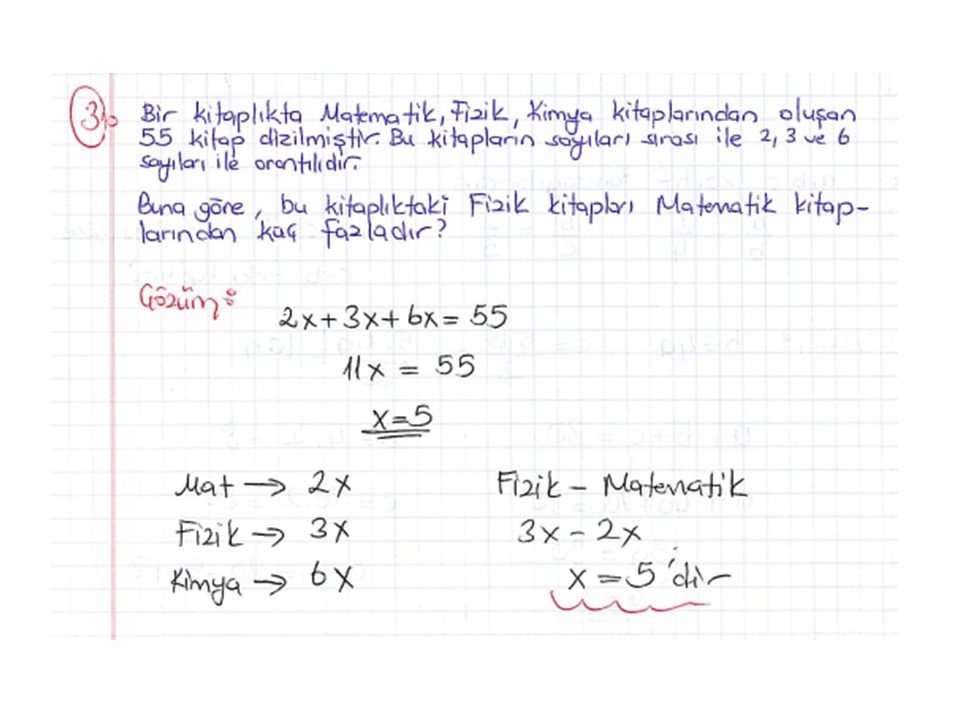 3) Bir kitaplıkta Matematik, Fizik, Kimya kitaplarından oluşan
55 kitap dizilmiştir. Bu kitapların sayıları sırası ile 2, 3 ve 6
sayıları ile orantılıdır.
Buna göre, bu kitaplıktaki Fizik kitapları Matematik kitap-
larından kaç fazladır?
Çözüm:
2x+3x+6x= 55
11x = 55
x=5
Mat → 2x
Fizik → 3x
Kimya → 6x
Fizik - Matematik
3x - 2x
x = 5'dir